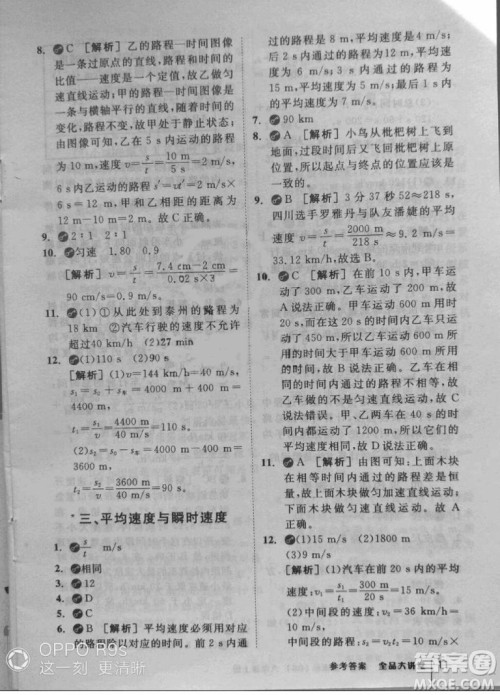 8. C [解析] 乙的路程—时间图像
是一条过原点的直线,路程和时间的
比值——速度是一个定值,故乙做匀
速直线运动;甲的路程—时间图像
是一条与横轴平行的直线,随时间的
变化,路程不变,故甲处于静止状态;
由图可知,在 5 s 内乙运动的路程是
10 m,速度 v=s/t=10 m/5 s=2 m/s,
6 s内乙运动的路程 s'=vt'=2 m/s×
6 s=12 m,甲与乙相距的距离为
12 m-10 m=2 m,故C正确。
9. 2∶1 2∶1
10. 匀速 1.80 0.9
[解析] v=s/t=7.4 cm-2 cm/0.03 s×2=
90 cm/s=0.9 m/s。
11. (1)①从此处到泰州的路程为
18 km ②汽车行驶的速度不允许
超过40 km/h (2)27 min
12. (1)110 s (2)90 s
[解析] (1)v=144 km/h=40 m/s,
s₁=s桥+s车=4000 m+400 m=
4400 m,
t₁=s₁/v=4400 m/40 m/s=110 s。
(2)s₂=s桥-s车=4000 m-400 m=
3600 m,
t₂=s₂/v=3600 m/40 m/s=90 s。
*三、平均速度与瞬时速度
1. s/t m/s
2. 相同
3. 12
4. D
5. A
6. B [解析] 平均速度必须用对应
的路程除以对应的时间。前 2 s内通
过的路程是 8 m,平均速度为 4 m/s;
后 2 s 内通过的路程为 12 m,平均速
度为 6 m/s;后 3 s内通过的路程为
15 m,平均速度为 5 m/s;最后 1 s内
的平均速度为 7 m/s。
7. 90 km
8. A [解析] 小鸟从枇杷树上飞到
地面,又从地面上飞回枇杷树上的
原位置,所以起点与终点的位置应该是
一致的。
9. B [解析] 3 分 37 秒 52≈218 s,
四川选手罗雅丹与队友潘婕的平均
速度为 v=s/t=2000 m/218 s≈9.2 m/s=
33.12 km/h,故选 B。
10. C [解析] 在前 10 s内,甲车运
动了 300 m,乙车运动了 200 m,故
A说法正确。甲车运动 600 m用时
20 s,而在20 s的时间内乙车只运
动了 400 m,所以乙运动 600 m所用
的时间大于甲车运动 600 m所用的
时间,故 B 说法正确。乙车在相等
的时间内通过的路程不相等,乙车
做的不是匀速直线运动,故 C 说法
错误。甲、乙两车在 40 s的时间
内都运动了 1200 m,故 D说法正确。
11. A [解析] 由图可知:上面木块
在相同时间内通过的路程是恒定
的,上面木块做匀加速直线运动;下
面木块做匀速直线运动。
12. (1)15 m/s (2)1800 m
(3)9 m/s
[解析] (1)汽车在前 20 s的平均
速度为 v₁=s₁/t₁=300 m/20 s=15 m/s。
(2)中间段的速度:v₂=6 m/s,
中间段的路程:s₂=v₂t₂=6 m/s×
参考答案 全品大讲堂
OPPO R9s
这一刻 更清晰
MXQE.COM